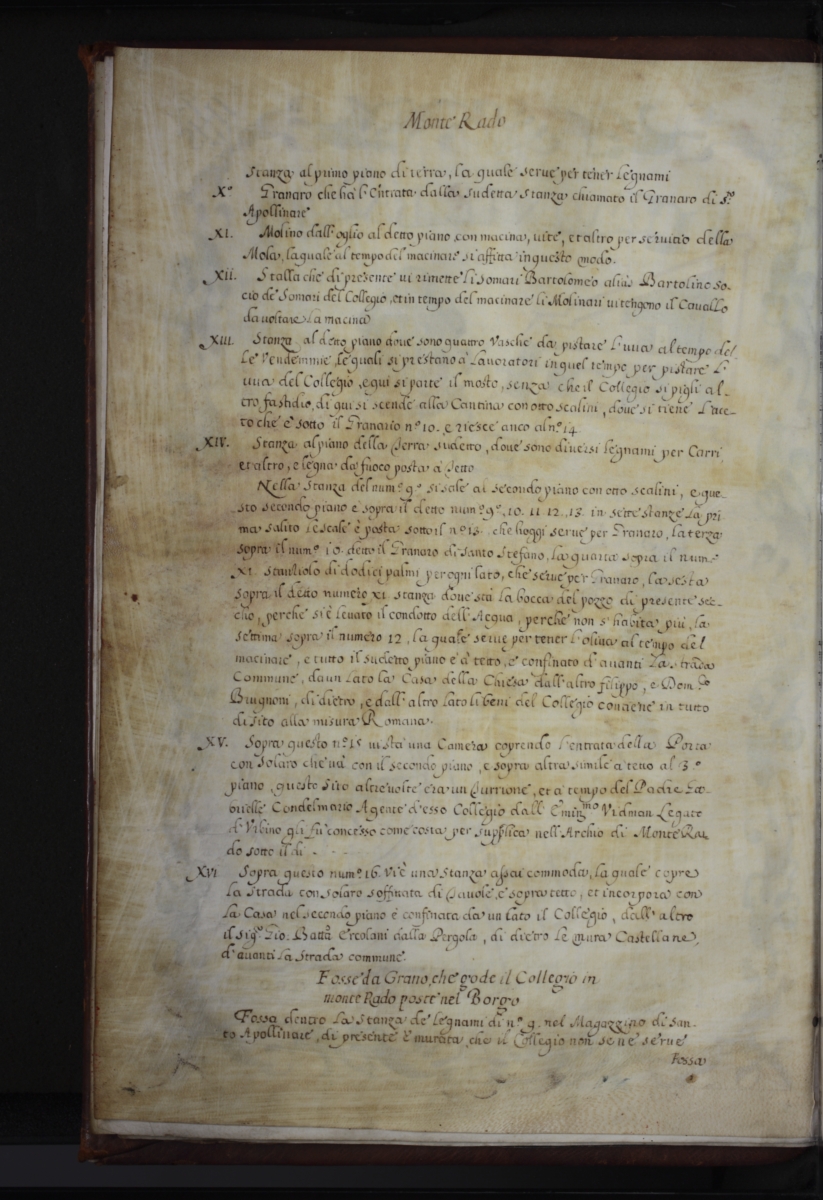 Monte Rado
Stanza al primo piano di terra, la quale serve per tener legnami
X.º Granaro che ha l'Entrata dalla sudetta stanza chiamato il Granaro di S.º
Apollinare
XI. Molino dall'oglio al detto piano con macina, vite, et altro per servitio della
Mola, la quale al tempo del macinare si affitta in questo modo.
XII. Stalla che di presente vi rimette li somari Bartolomeo alias Bartolino so-
cio de Somari del Collegio, et in tempo del macinare li Molinari vi tengono il Cavallo
da voltare la macina
XIII. Stanza al detto piano dove sono quattro Vasche da pistare l'uva al tempo del
le Vendemmie, le quali si prestano a Lavoratori in quel tempo per pistare l'
uva del Collegio, e qui si parte il mosto, senza che il Collegio si pigli al-
tro fastidio, di qui si scende alla Cantina con otto scalini, dove si tiene l'ace-
to che è sotto il Granario nº 10. e riesce anco al nº 14.
XIV. Stanza al piano della Terra sudetto, dove sono diversi legnami per Carri
et altro, e legna da fuoco posta a tetto
Nella Stanza del num.º 9.º si sale al secondo piano con otto scalini, e que-
sto secondo piano è sopra il detto num.º 9.º, 10. 11. 12. 13. in sette stanze la pri
ma salito le scale è posta sotto il nº 15. che hoggi serve per Granaro, la terza
sopra il num.º 10. detto il Granaro di Santo Stefano, la quarta sopra il num.º
XI. Stantiolo di dodici palmi per ogni lato, che serve per Granaro, la sesta
sopra il detto numero XI stanza dove sta la bocca del pozzo di presente sec-
cho, perche si è levato il condotto dell'Acqua, perche non s'habita piu, la
settima sopra il numero 12, la quale serve per tener l'oliva al tempo del
macinare, e tutto il sudetto piano è a tetto, e confinato d'avanti la strada
Commune, da un lato la Casa della Chiesa dall'altro filippo, e Dom.co
Brugnoni, di dietro, e dall'altro lato li beni del Collegio contiene in tutto
di sito alla misura Romana.
XV. Sopra questo nº 15 vi sta una Camera coprendo l'entrata della Porta
con solaro che va con il secondo piano, e sopra altra simile a tetto al 3.º
piano, questo sito altre volte era un Turrione, et a tempo del Padre
Condelmario Agente d'esso Collegio dall'Eminmo Vidman Legato
d'Urbino gli fu concesso come costa per supplica nell'Archio di Monte Ra
do sotto il di - - -
XVI Sopra questo num.º 16. vi è una Stanza assai commoda, la quale copre
la Strada con solaro soffittata di Tavole, e sopra tetto, et incorpora con
la Casa nel secondo piano e confinata da un lato il Collegio, dall'altro
il sig.r Gio. Batta Ercolani dalla Pergola, di dietro le mura Castellane,
d'avanti la strada commune.
Fosse da Grano, che gode il Collegio in
monte Rado poste nel Borgo
Fossa dentro la Stanza de legnami di nº 9. nel Magazzino di San-
to Apollinare, di presente è murata, che il Collegio non se ne serve
Fossa